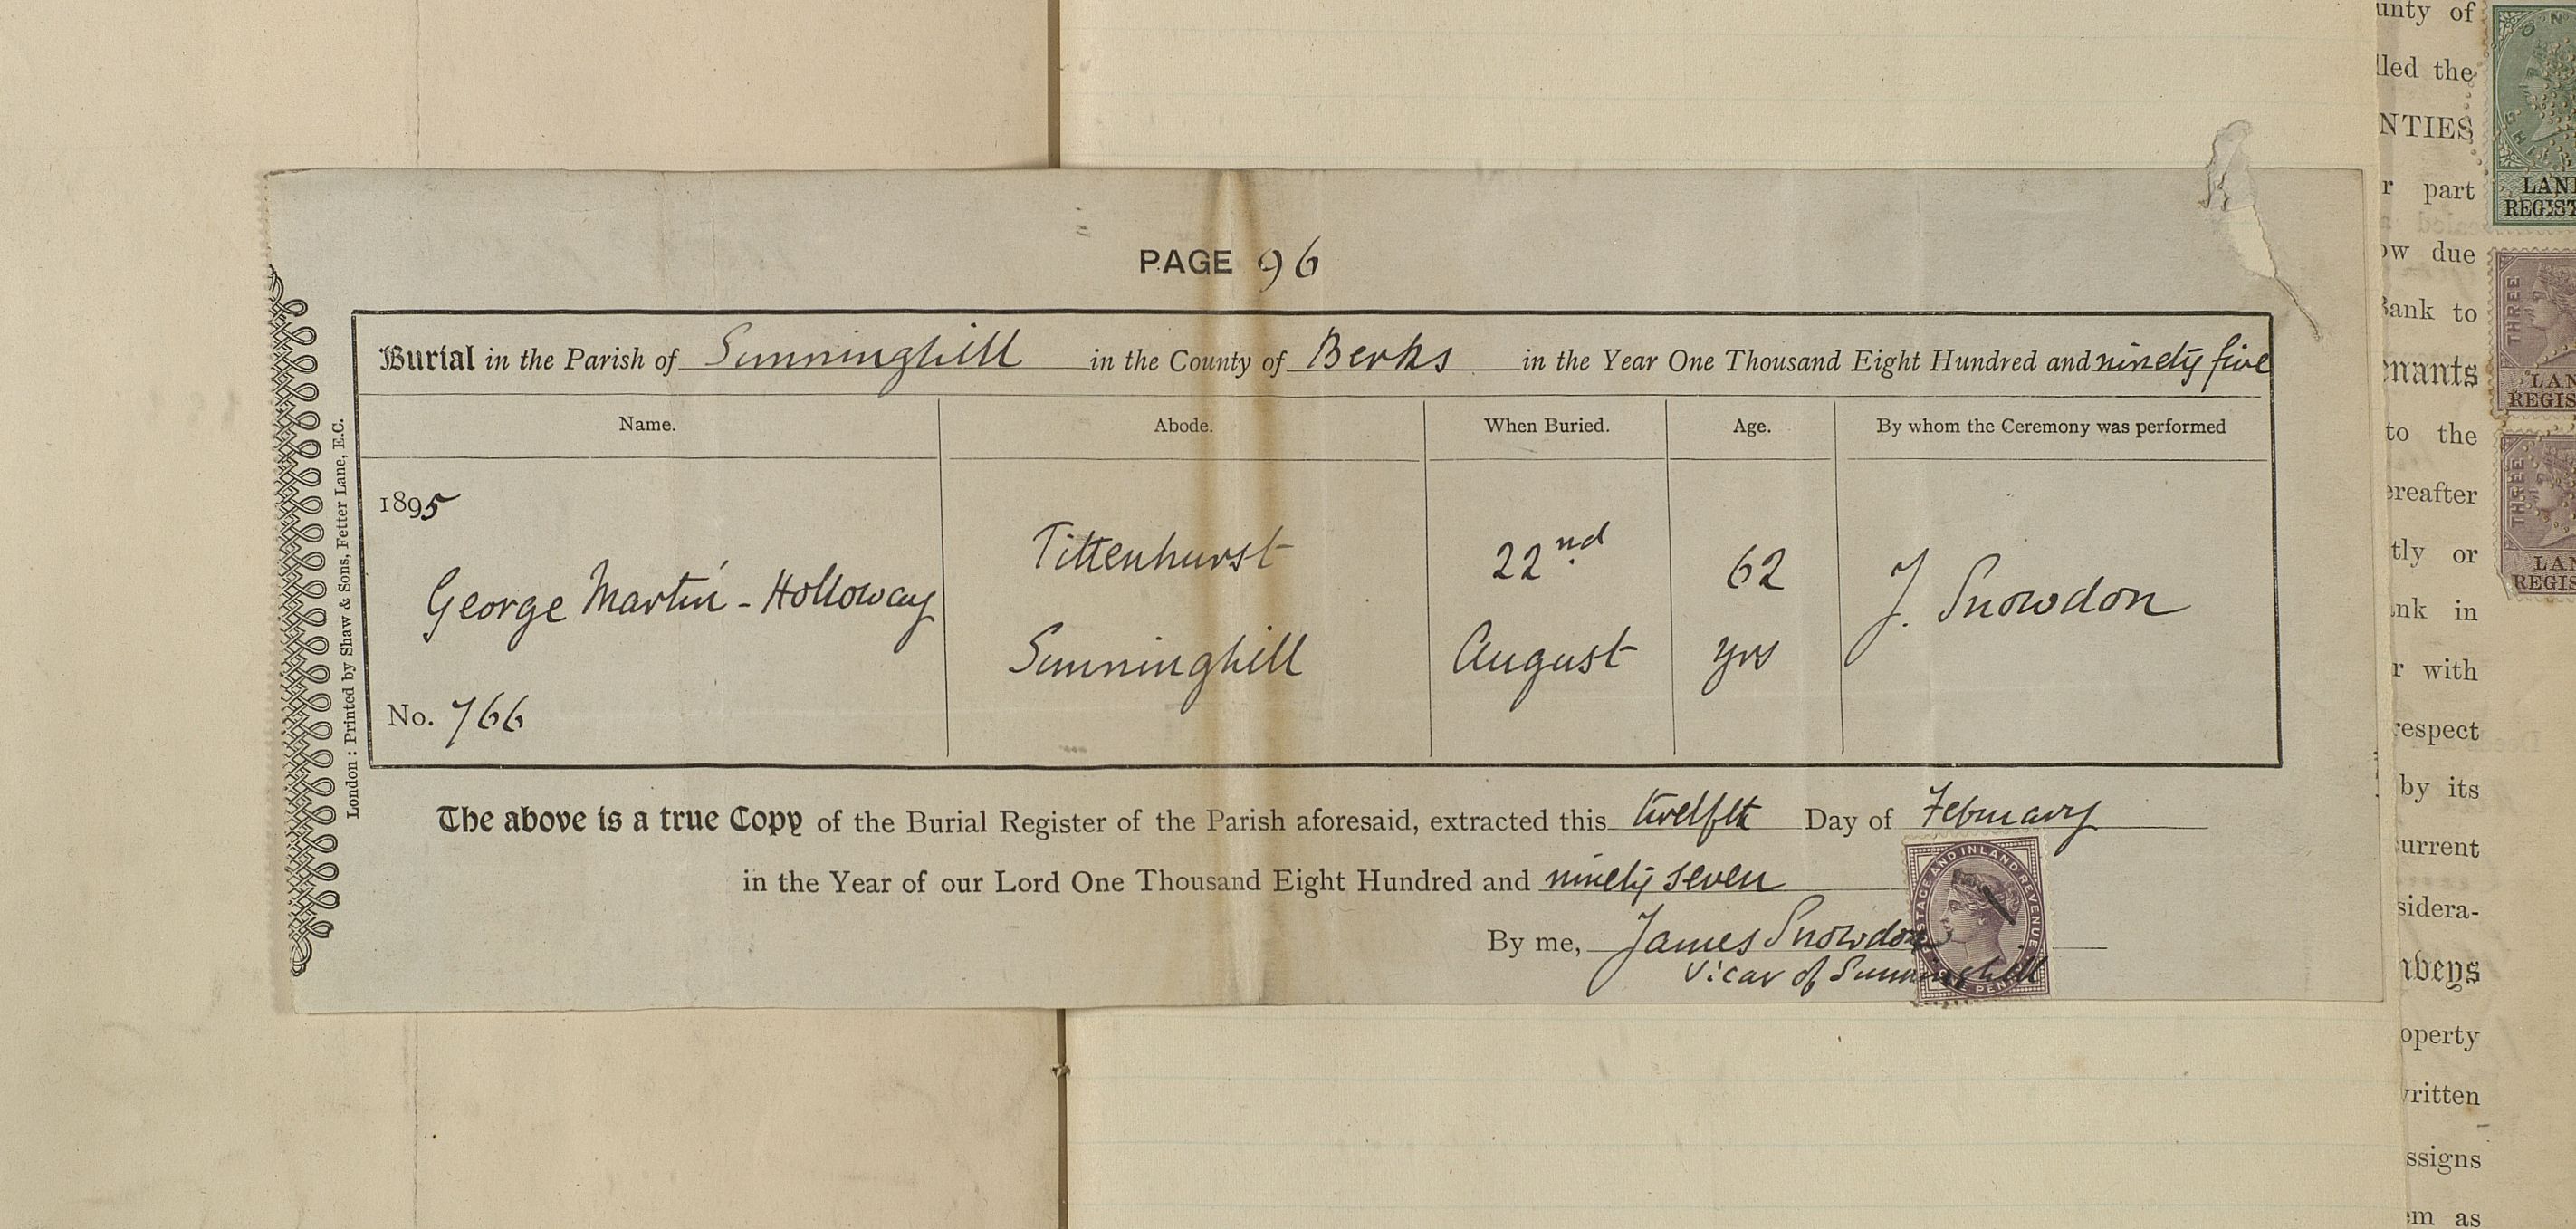 PAGE 96
Burial in the Parish of Sunninghill in the County of Berks in the Year One Thousand Eight Hundred and ninety five
Name. Abode. When Buried. Age. By whom the Ceremony was performed
1895
George Martin - Holloway
Tittenhurst
Sunninghill
22nd
August
62
yrs
J. Snowdon
No. 766
The above is a true Copy of the Burial Register of the Parish aforesaid, extracted this twelfth Day of February
in the Year of our Lord One Thousand Eight Hundred and ninety seven
By me, James Snowdon
Vicar of Sunninghill
POSTAGE AND INLAND REVENUE
ONE PENNY
London : Printed by Shaw & Sons, Fetter Lane, E.C.
unty of
lled the
NTIES
r part
ow due
Bank to
enants
to the
ereafter
tly or
nk in
r with
respect
by its
urrent
sidera-
nveys
operty
written
ssigns
em as
LAND
REGIST
THREE
LAN
REGIS
THREE
LAN
REGIS